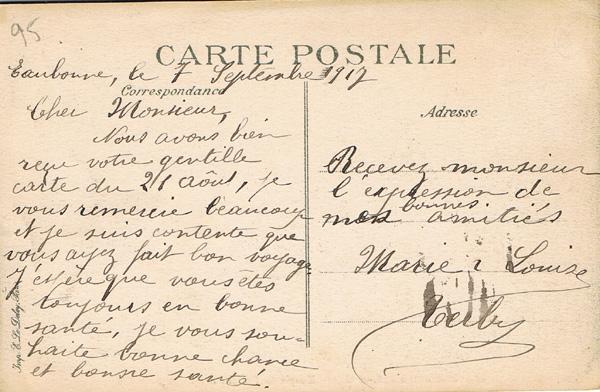 95
CARTE POSTALE
Eaubonne, le 7 Septembre 1917
Correspondance
Cher Monsieur,
Nous avons bien
reçu votre gentille
carte du 21 Août, je
vous remercie beaucoup
et je suis contente que
vous ayez fait bon voyage
J'espère que vous êtes
toujours en bonne
santé, je vous sou-
haite bonne chance
et bonne santé.
Adresse
Recevez monsieur
l'expression de
mes bonnes amitiés
Marie Louise
Imp. E. Le Deley, Paris